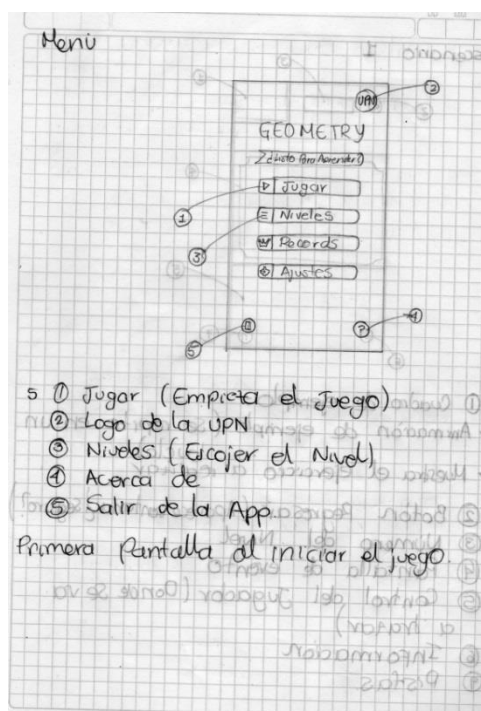 Menú
UPN
②
GEOMETRY
¿Listo Para Aprender?
Jugar
①
Niveles
③
Records
Ajustes
?
④
⑤
① Jugar (Empieza el Juego)
② Logo de la UPN
③ Niveles (Escojer el Nivel)
④ Acerca de
⑤ Salir de la App
Primera Pantalla al iniciar el juego.